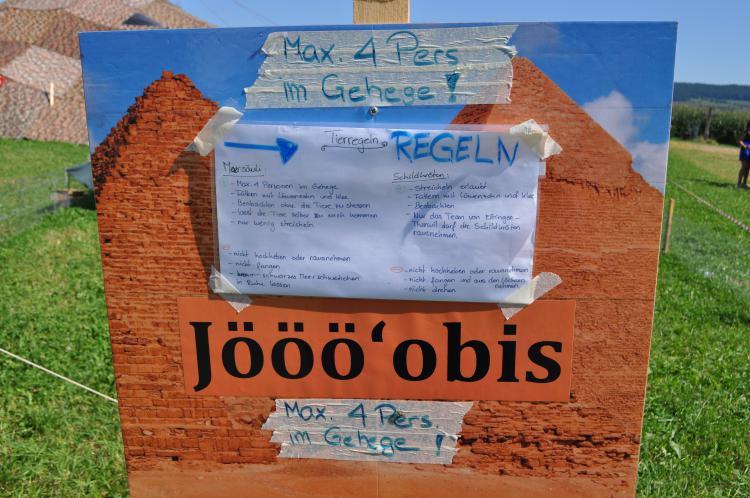 Max. 4 Pers
im Gehege!
Tierregeln
REGELN
Meersäuli:
- Max. 4 Personen im Gehege
- Füttern mit Löwenzahn und Klee
- Beobachten ohne die Tiere zu stressen
- lasst die Tiere selber zu euch kommen
- nur wenig streicheln
- nicht hochheben oder rausnehmen
- nicht fangen
- schwarzes Meerschweinchen
in Ruhe lassen
Schildkröten:
- Streicheln erlaubt
- Füttern mit Löwenzahn und Klee
- Beobachten
- Nur das Team von Ettingen-
Therwil darf die Schildkröten
rausnehmen.
- nicht hochheben oder rausnehmen
- nicht fangen und aus den Löchern
nehmen
- nicht drehen
Jööö'obis
Max. 4 Pers
im Gehege!